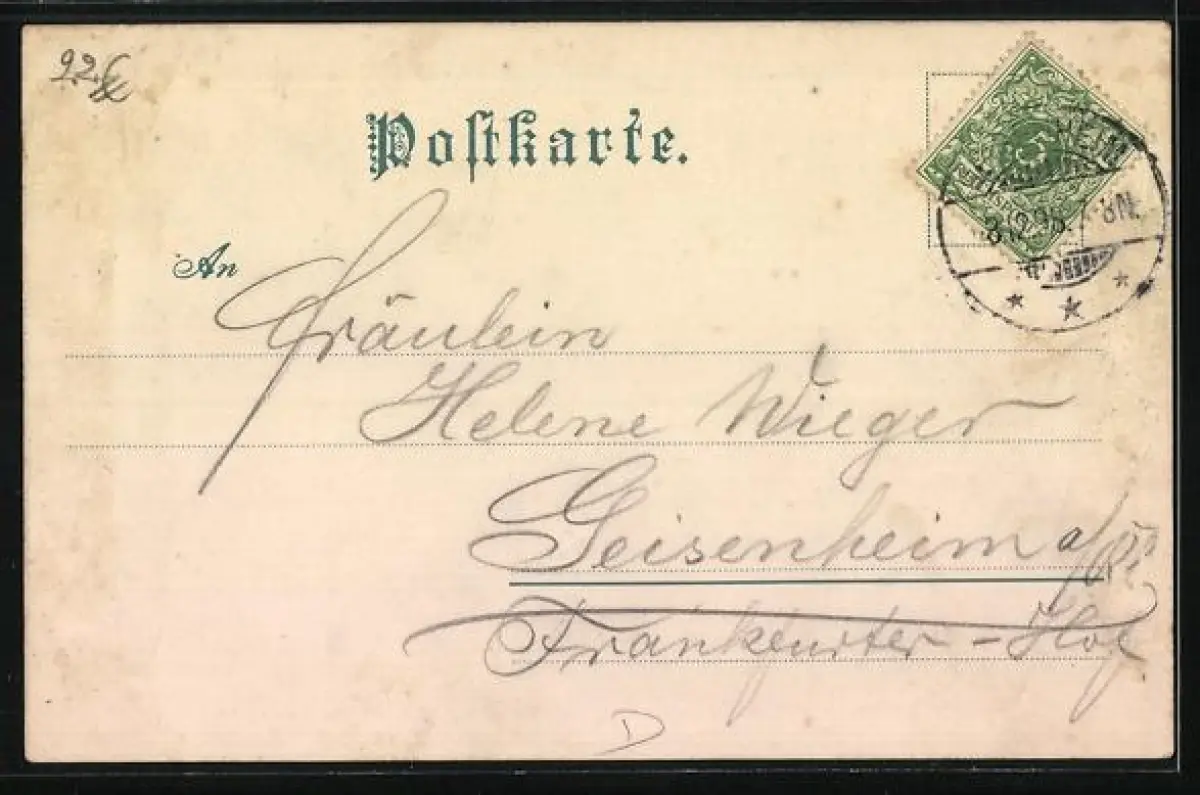 Postkarte.
HEIM
8.12.98. 7-8N.
An
Fräulein
Helene Wieger
Geisenheim a/Rh
Frankfurter-Hof
D